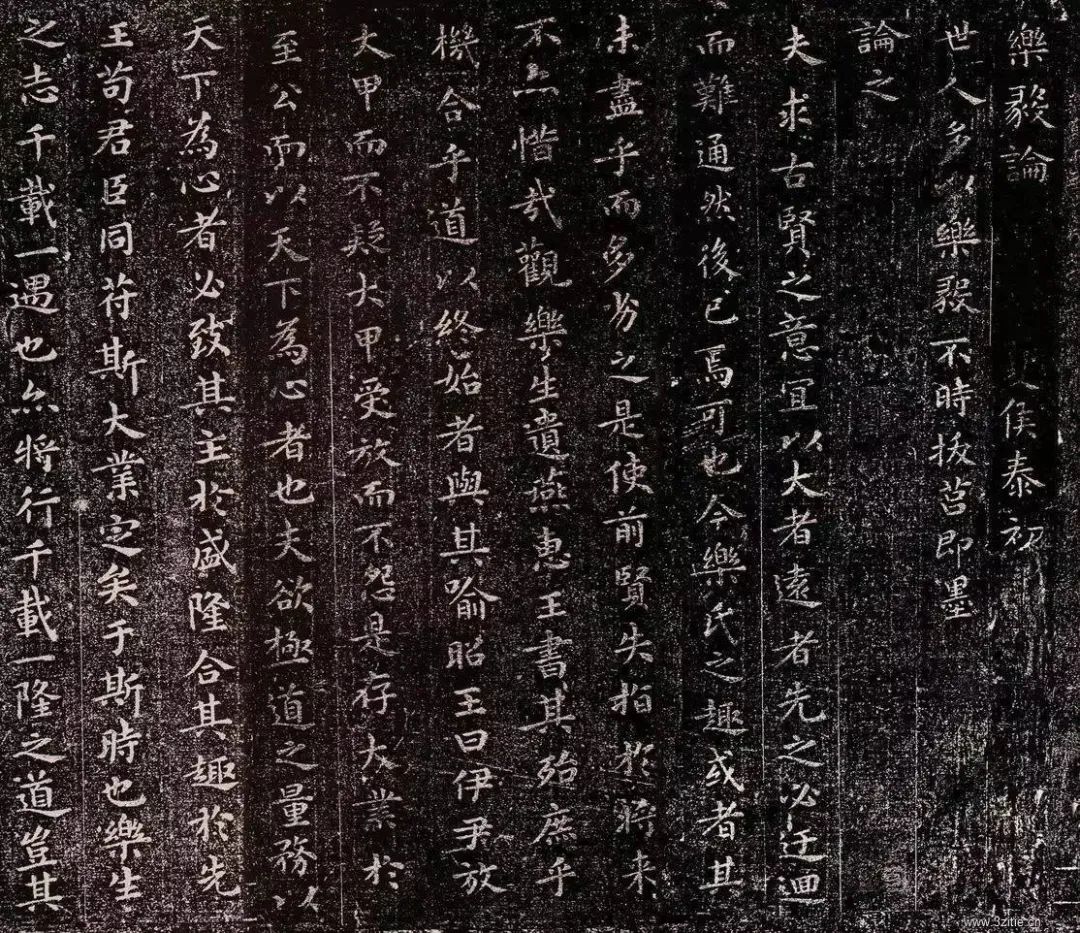 樂毅論
夏侯泰初
世人多以樂毅不時拔莒即墨
論之
夫求古賢之意宜以大者遠者先之必迂迴
而難通然後已焉可也今樂氏之趣或者其
未盡乎而多劣之是使前賢失指於將來
不亦惜哉觀樂生遺燕惠王書其殆庶乎
機合乎道以終始者與其喻昭王曰伊尹放
大甲而不疑大甲受放而不怨是存大業於
至公而以天下為心者也夫欲極道之量務以
天下為心者必致其主於盛隆合其趣於先
王苟君臣同符斯大業定矣于斯時也樂生
之志千載一遇也亦將行千載一隆之道豈其
www.3zitie.cn